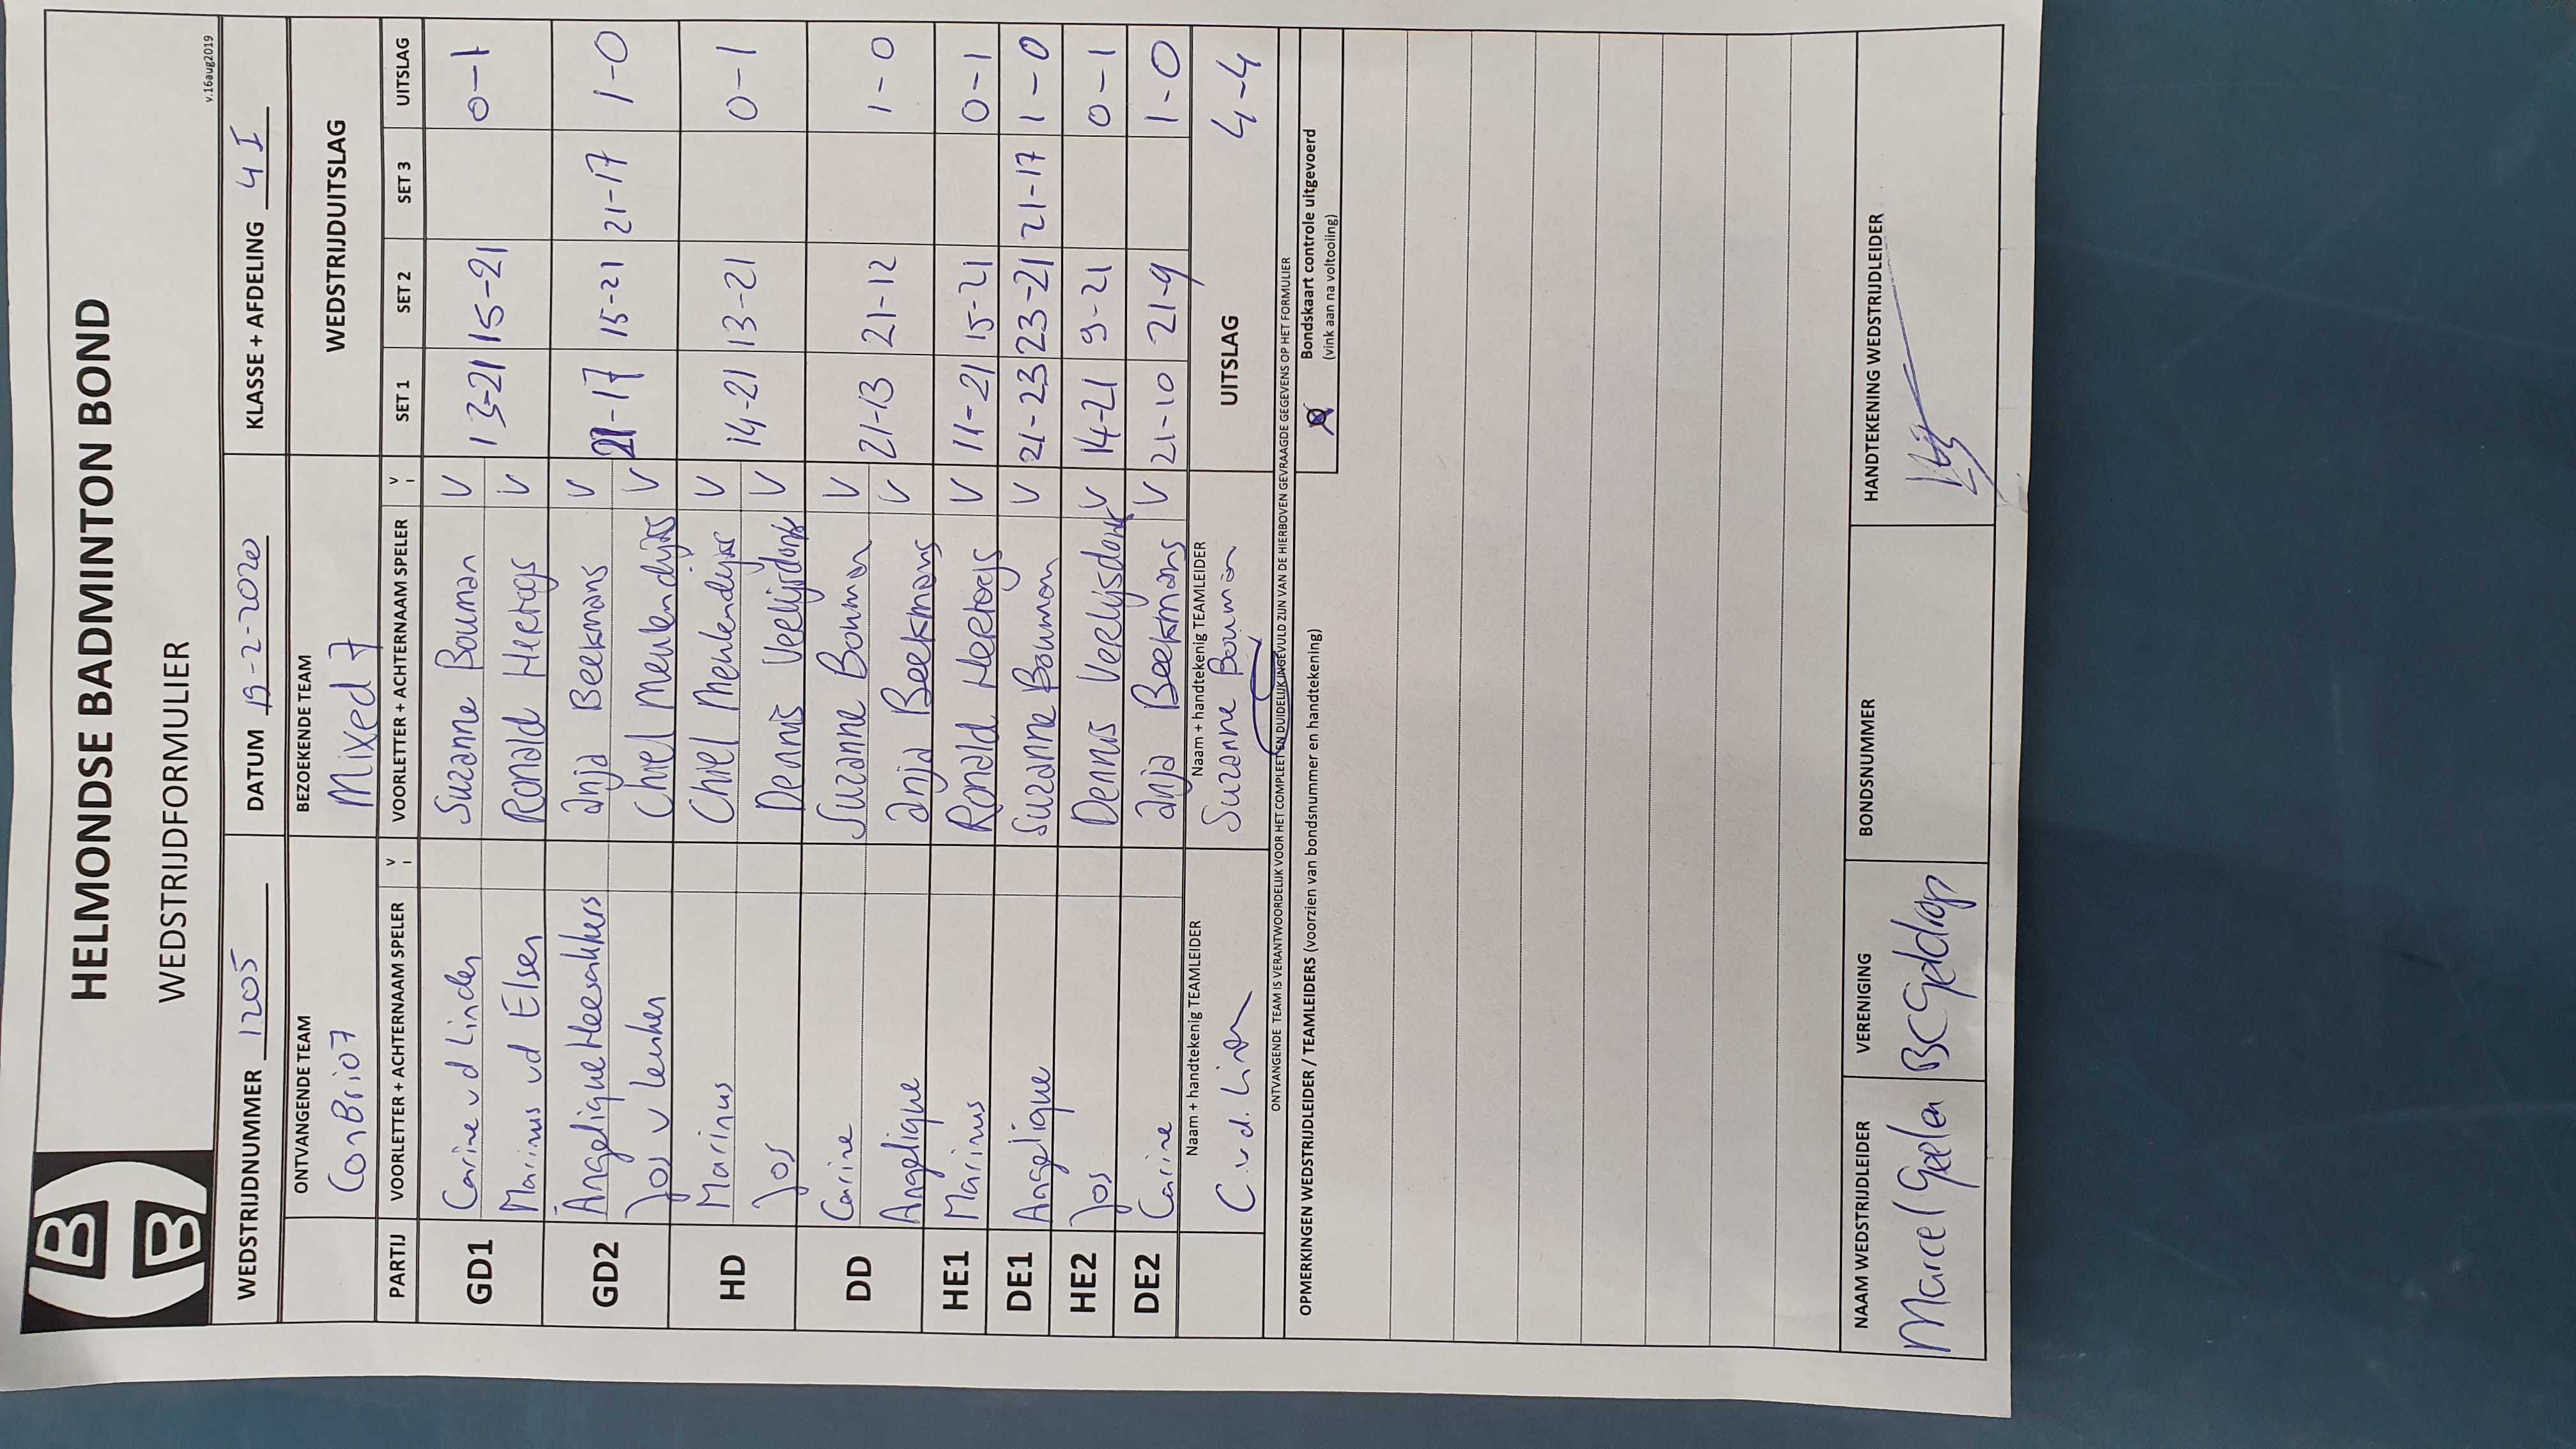 HELMONDSE BADMINTON BOND
WEDSTRIJDFORMULIER
v.16aug2019
WEDSTRIJDNUMMER 1205 DATUM 19-2-2020 KLASSE + AFDELING 4 I
ONTVANGENDE TEAM BEZOEKENDE TEAM WEDSTRIJDUITSLAG
ConBrio7 Mixed 7
PARTIJ VOORLETTER + ACHTERNAAM SPELER V I VOORLETTER + ACHTERNAAM SPELER V I SET 1 SET 2 SET 3 UITSLAG
GD1 Carine v d Linden Suzanne Bouman V 13-21 15-21 0-1
Marinus vd Elsen Ronald Hertogs V
GD2 Angelique Heesakkers Anja Beekmans V 21-17 15-21 21-17 1-0
Jos v Lenken Chiel Meulendijks V
HD Marinus Chiel Meulendijks V 14-21 13-21 0-1
Jos Dennis Verlijsdonk V
DD Carine Suzanne Bouman V 21-13 21-12 1-0
Angelique Anja Beekmans V
HE1 Marinus Ronald Hertogs V 11-21 15-21 0-1
DE1 Angelique Suzanne Bouman V 21-23 23-21 21-17 1-0
HE2 Jos Dennis Verlijsdonk V 14-21 9-21 0-1
DE2 Carine Anja Beekmans V 21-10 21-9 1-0
Naam + handtekenig TEAMLEIDER Naam + handtekenig TEAMLEIDER UITSLAG 4-4
C.v.d. Linden Suzanne Bouman
ONTVANGENDE TEAM IS VERANTWOORDELIJK VOOR HET COMPLEET EN DUIDELIJK INGEVULD ZIJN VAN DE HIERBOVEN GEVRAAGDE GEGEVENS OP HET FORMULIER
OPMERKINGEN WEDSTRIJDLEIDER / TEAMLEIDERS (voorzien van bondsnummer en handtekening) Bondskaart controle uitgevoerd
(vink aan na voltooiing)
NAAM WEDSTRIJDLEIDER VERENIGING BONDSNUMMER HANDTEKENING WEDSTRIJDLEIDER
Marcel Geelen BC Geldrop